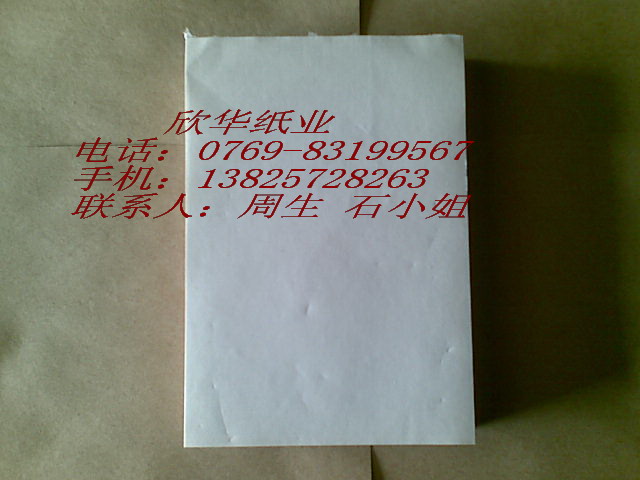 欣华纸业
电话：0769-83199567
手机：13825728263
联系人：周生 石小姐